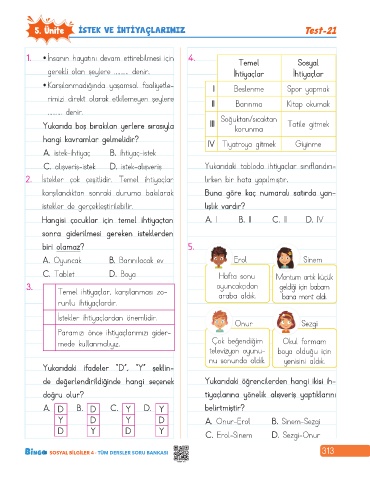 5. Ünite
İSTEK VE İHTİYAÇLARIMIZ
Test-21
1. • İnsanın hayatını devam ettirebilmesi için
gerekli olan şeylere .......... denir.
• Karşılanmadığında yaşamsal faaliyetle-
rimizi direkt olarak etkilemeyen şeylere
.......... denir.
Yukarıda boş bırakılan yerlere sırasıyla
hangi kavramlar gelmelidir?
A. istek-ihtiyaç B. ihtiyaç-istek
C. alışveriş-istek D. istek-alışveriş
2. İstekler çok çeşitlidir. Temel ihtiyaçlar
karşılandıktan sonraki duruma bakılarak
istekler de gerçekleştirilebilir.
Hangisi çocuklar için temel ihtiyaçtan
sonra giderilmesi gereken isteklerden
biri olamaz?
A. Oyuncak B. Barınılacak ev
C. Tablet D. Boya
3. Temel ihtiyaçlar, karşılanması zo-
runlu ihtiyaçlardır.
İstekler ihtiyaçlardan önemlidir.
Paramızı önce ihtiyaçlarımızı gider-
mede kullanmalıyız.
Yukarıdaki ifadeler "D", "Y" şeklin-
de değerlendirildiğinde hangi seçenek
doğru olur?
A. D B. D C. Y D. Y
Y D Y D
D Y D Y
4. Temel Sosyal
İhtiyaçlar İhtiyaçlar
I Beslenme Spor yapmak
II Barınma Kitap okumak
III Soğuktan/sıcaktan korunma Tatile gitmek
IV Tiyatroya gitmek Giyinme
Yukarıdaki tabloda ihtiyaçlar sınıflandırı-
lırken bir hata yapılmıştır.
Buna göre kaç numaralı satırda yan-
lışlık vardır?
A. I B. II C. III D. IV
5.
Erol
Hafta sonu
oyuncakçıdan
araba aldık.
Sinem
Montum artık küçük
geldiği için babam
bana mont aldı.
Onur
Çok beğendiğim
televizyon oyunu-
nu sonunda aldık.
Sezgi
Okul formam
boya olduğu için
yenisini aldık.
Yukarıdaki öğrencilerden hangi ikisi ih-
tiyaçlarına yönelik alışveriş yaptıklarını
belirtmiştir?
A. Onur-Erol B. Sinem-Sezgi
C. Erol-Sinem D. Sezgi-Onur
BİNGO SOSYAL BİLGİLER 4 - TÜM DERSLER SORU BANKASI
313